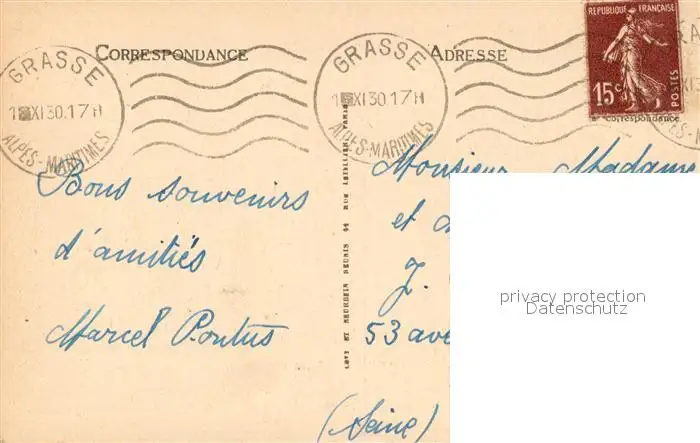 CORRESPONDANCE
ADRESSE
GRASSE
XI 30.17H
ALPES-MARITIMES
GRASSE
XI 30.17H
ALPES-MARITIMES
REPUBLIQUE FRANÇAISE
15c
POSTES
correspondance
Bons souvenirs
d'amitiés
Marcel Pontus
LEVY ET NEURDEIN REUNIS 44 RUE LETELLIER, PARIS
Monsieur Madame
et
J.
53 ave
(Seine)
privacy protection
Datenschutz